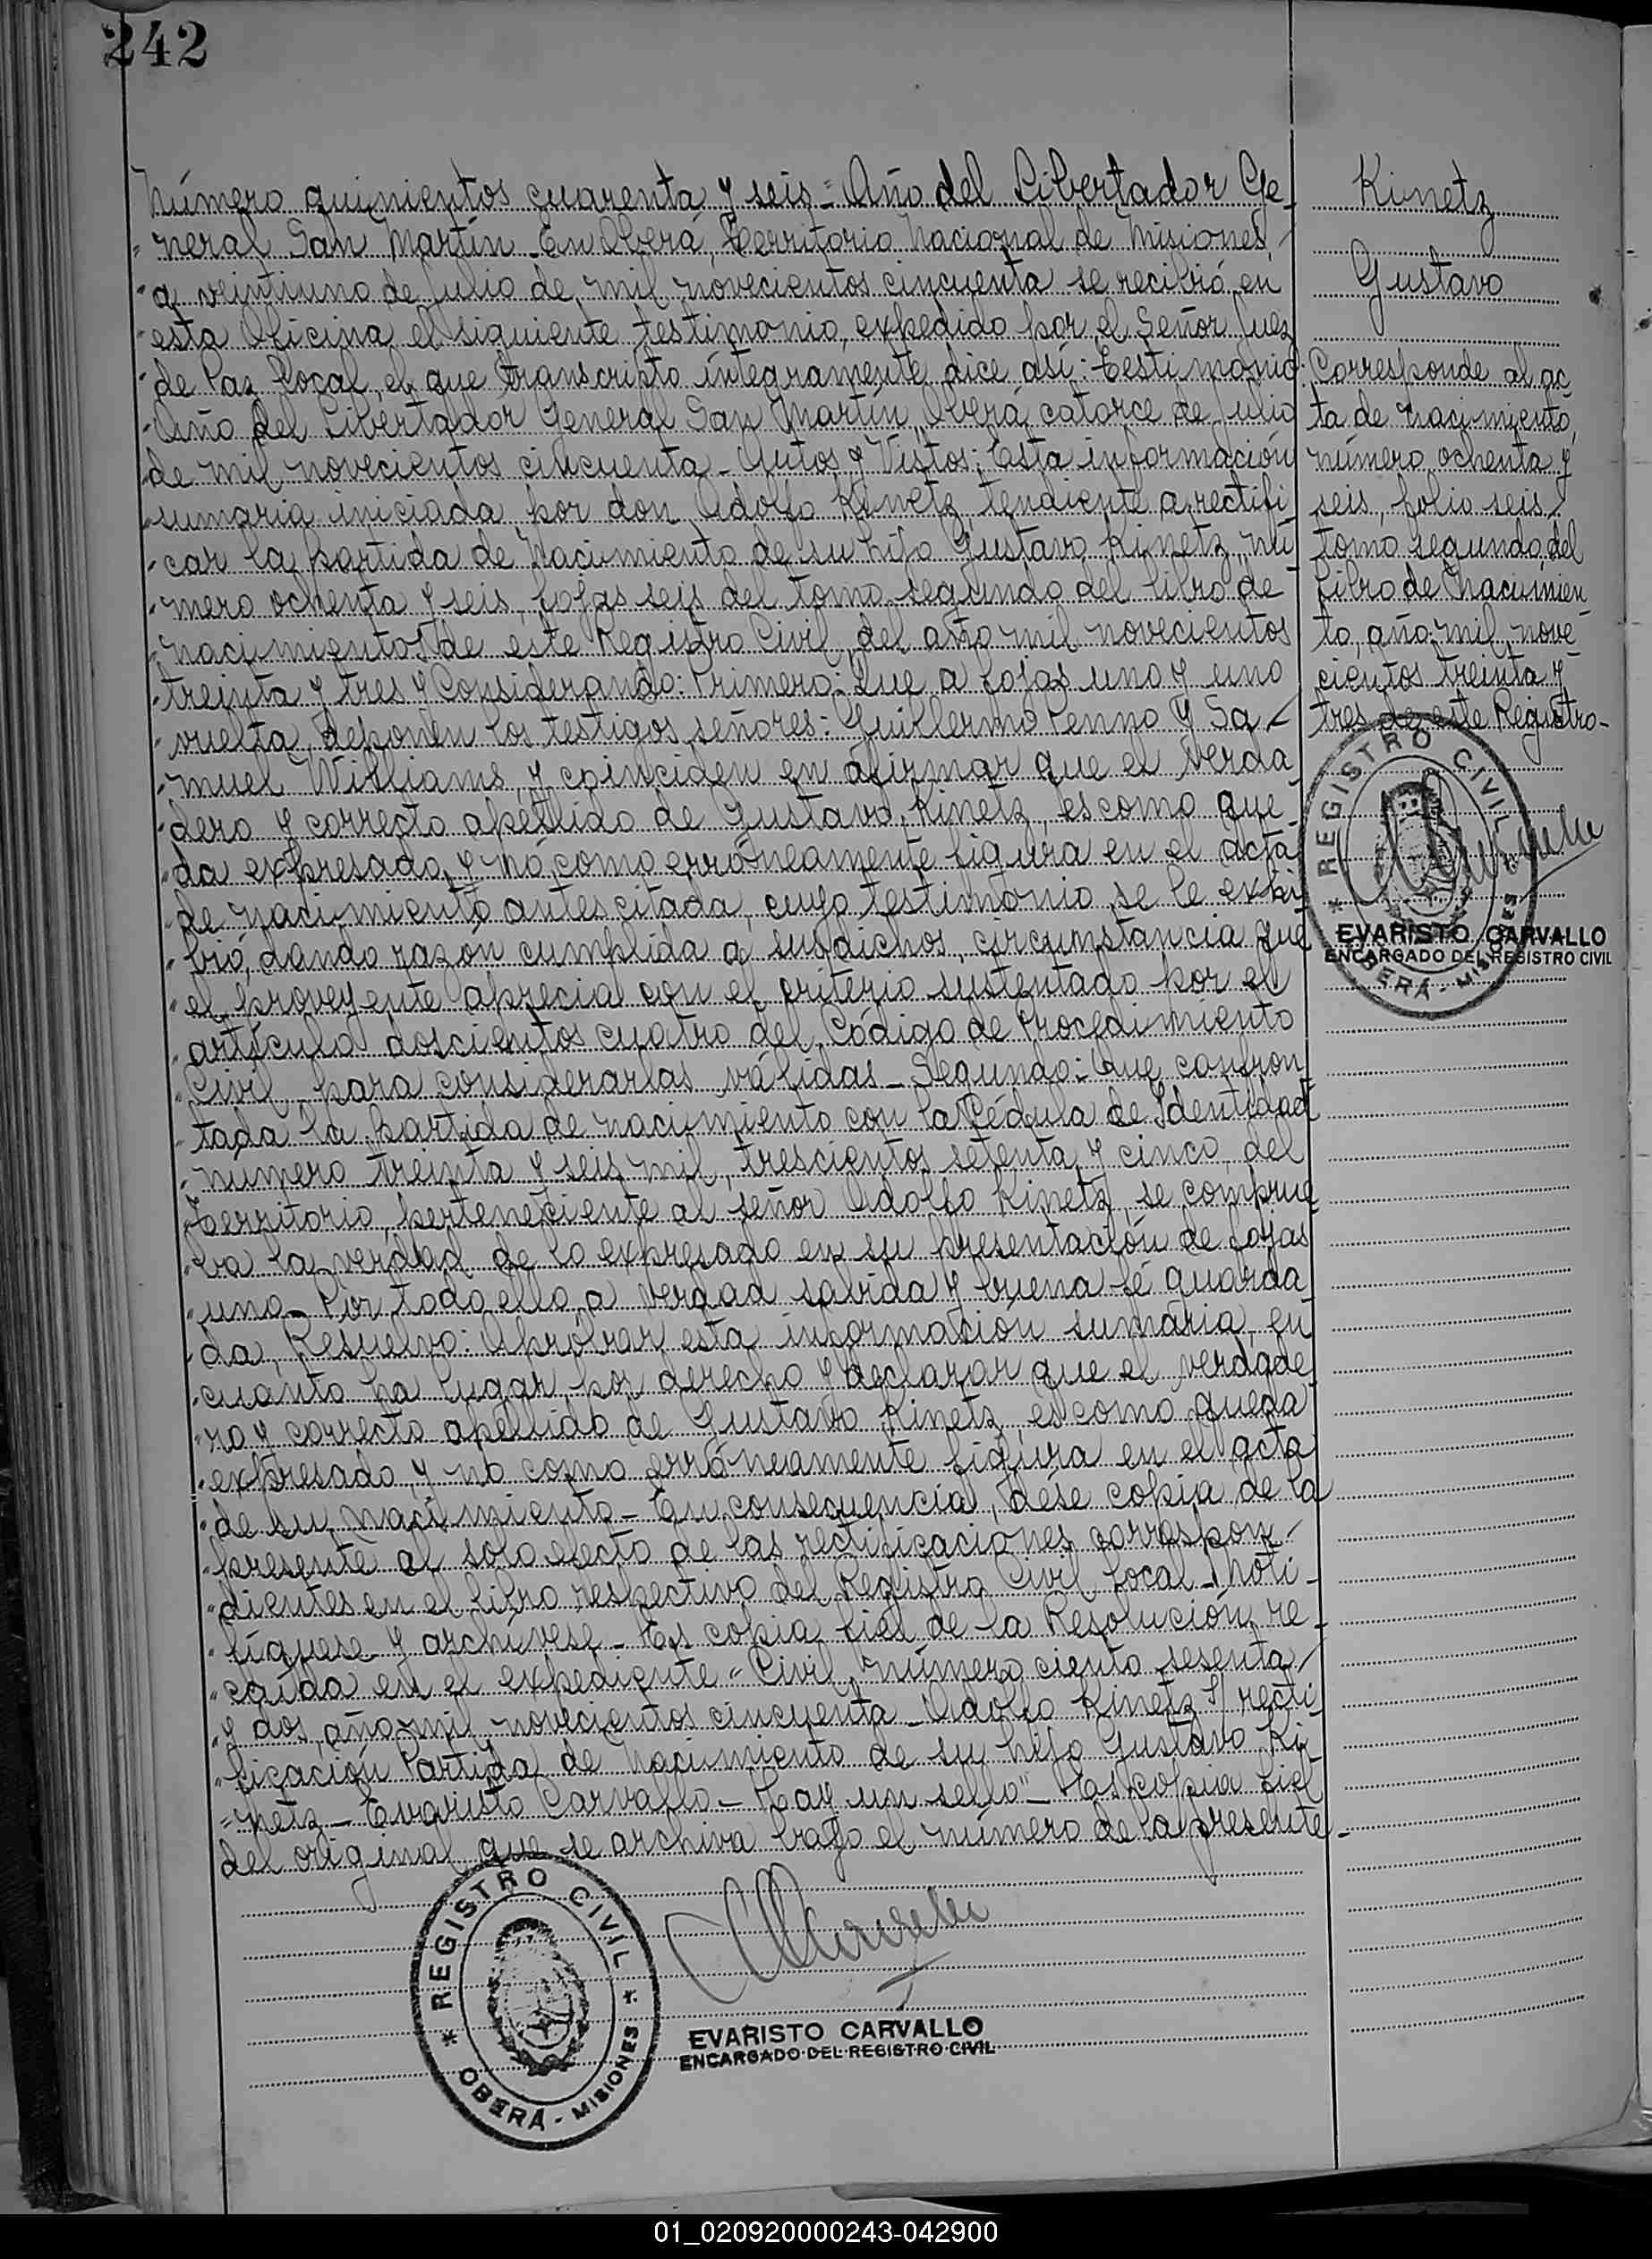 242
Número quinientos cuarenta y seis = Año del Libertador Ge-
neral San Martín - En Oberá, Territorio Nacional de Misiones,
a veintiuno de Julio de mil novecientos cincuenta se recibió en
esta Oficina el siguiente testimonio, expedido por el Señor Juez
de Paz local, el que transcripto íntegramente dice así: Testimonio.
Año del Libertador General San Martín, Oberá, catorce de Julio
de mil novecientos cincuenta - Autos y Vistos: Esta información
sumaria iniciada por don Adolfo Kinetz, tendiente a rectifi-
car la partida de Nacimiento de su hijo Gustavo Kinetz, nú-
mero ochenta y seis, fojas seis del tomo segundo del libro de
nacimientos de este Registro Civil, del año mil novecientos
treinta y tres y Considerando: Primero: Que a fojas uno y uno
vuelta, deponen los testigos señores: Guillermo Penno y Sa-
muel Williams, y coinciden en afirmar que el verda-
dero y correcto apellido de Gustavo Kinetz, es como que-
da expresado y nó como erróneamente figura en el acta
de nacimiento antes citada, cuyo testimonio se le exhi-
bió, dando razón cumplida a sus dichos, circumstancia que
el proveyente aprecia con el criterio sustentado por el
artículo doscientos cuatro del Código de Procedimiento
Civil para considerarlas válidas - Segundo: Que confron-
tada la partida de nacimiento con la Cédula de Identidad
número treinta y seis mil, trescientos setenta y cinco, del
Territorio, perteneciente al señor Adolfo Kinetz, se comprue-
ba la verdad de lo expresado en su presentación de fojas
uno - Por todo ello, a verdad sabida y buena fé guarda-
da, Resuelvo: Aprobar esta información sumaria, en
cuanto ha lugar por derecho y declarar que el verdade-
ro y correcto apellido de Gustavo Kinetz, es como queda
expresado y no como erróneamente figura en el acta
de su nacimiento - En consecuencia, dése copia de la
presente al solo efecto de las rectificaciones correspon-
dientes en el libro respectivo del Registro Civil local - Noti-
fíquese y archívese - Es copia fiel de la Resolución re-
caída en el expediente "Civil, número ciento sesenta
y dos, año mil novecientos cincuenta - Adolfo Kinetz s/ recti-
ficación Partida de Nacimiento de su hijo Gustavo Ki-
netz - Evaristo Carvallo - Hay un sello" - Es copia fiel
del original que se archiva bajo el número de la presente -
REGISTRO CIVIL
OBERÁ - MISIONES
EVARISTO CARVALLO
ENCARGADO DEL REGISTRO CIVIL
Kinetz
Gustavo
Corresponde al ac-
ta de nacimiento,
número ochenta y
seis, folio seis,
tomo segundo del
libro de Nacimien-
to, año mil nove-
cientos treinta y
tres de este Registro-
REGISTRO CIVIL
OBERÁ - MISIONES
EVARISTO CARVALLO
ENCARGADO DEL REGISTRO CIVIL
01_020920000243-042900